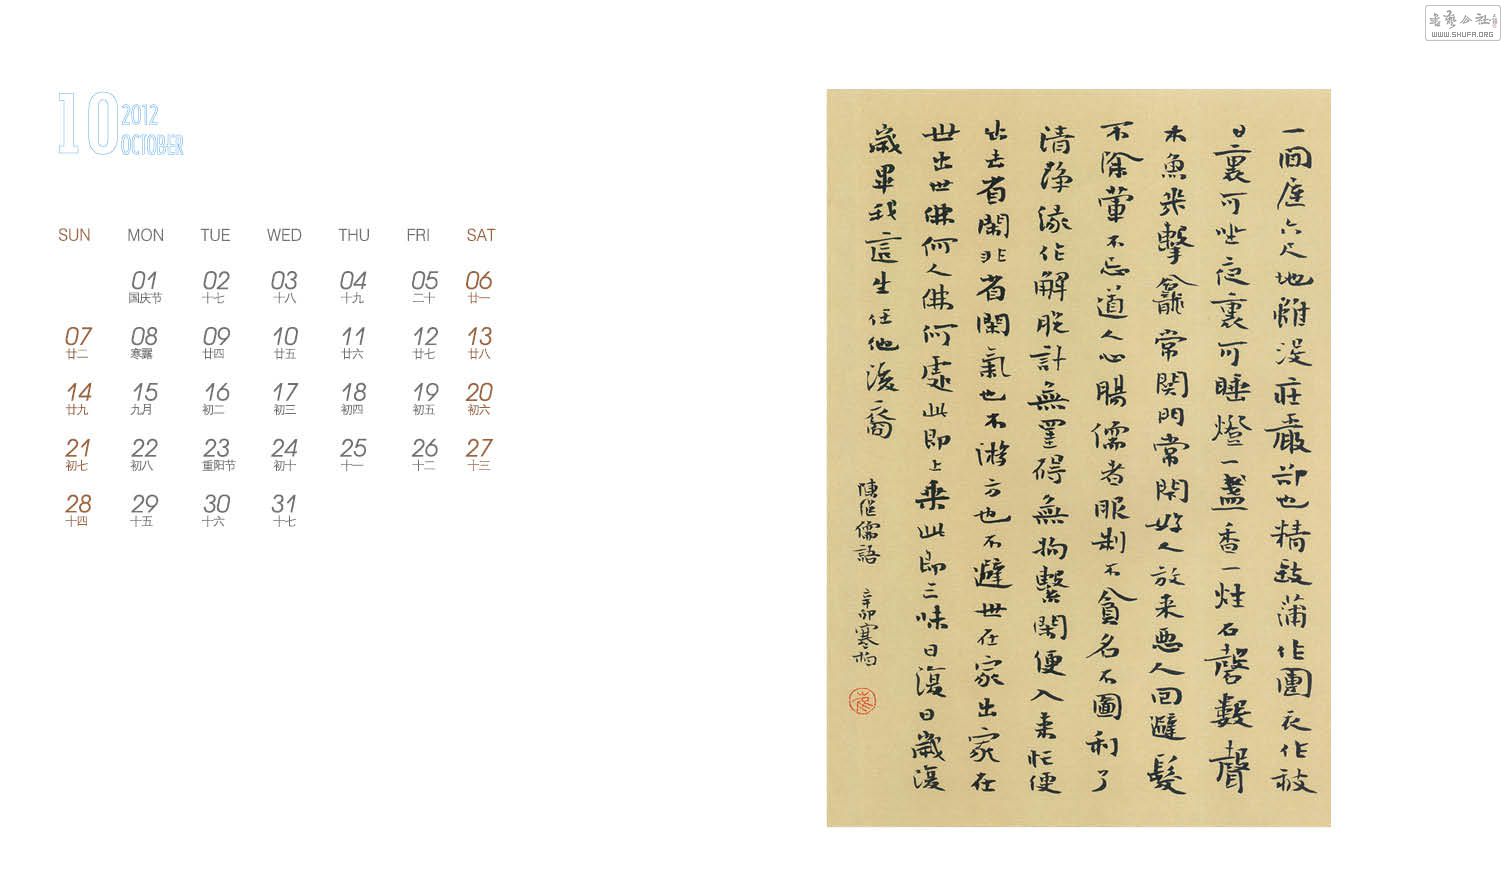 書藝公社
WWW.SHUFA.ORG
10 2012
OCTOBER
SUN MON TUE WED THU FRI SAT
01 02 03 04 05 06
国庆节 十七 十八 十九 二十 廿一
07 08 09 10 11 12 13
廿二 寒露 廿四 廿五 廿六 廿七 廿八
14 15 16 17 18 19 20
廿九 九月 初二 初三 初四 初五 初六
21 22 23 24 25 26 27
初七 初八 重阳节 初十 十一 十二 十三
28 29 30 31
十四 十五 十六 十七
一間屋六尺地雖沒莊嚴却也精致蒲作團衣作被
日裏可坐夜裏可睡燈一盞香一炷石磬數聲
木魚幾擊龕常関門常関好人放来惡人回避髮
不除葷不忘道人心腸儒者服制不貪名不圖利了
清淨緣作解脫計無罣碍無拘繫閑便入来忙便
出去省閑非省閑氣也不游方也不避世在家出家在
世出世佛何人佛何處此即上乘此即三昧日復日歲復
歲畢我這生任他後裔
陳継儒語 辛卯寒柏